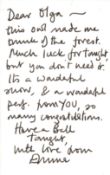 Dear Olga —
this owl made me
think of the forest.
Much luck for tonight,
but you don't need it.
Its a wonderful
show, & a wonderful
perf. from YOU, so
many congratulations.
Have a Ball
Tonight,
with love from